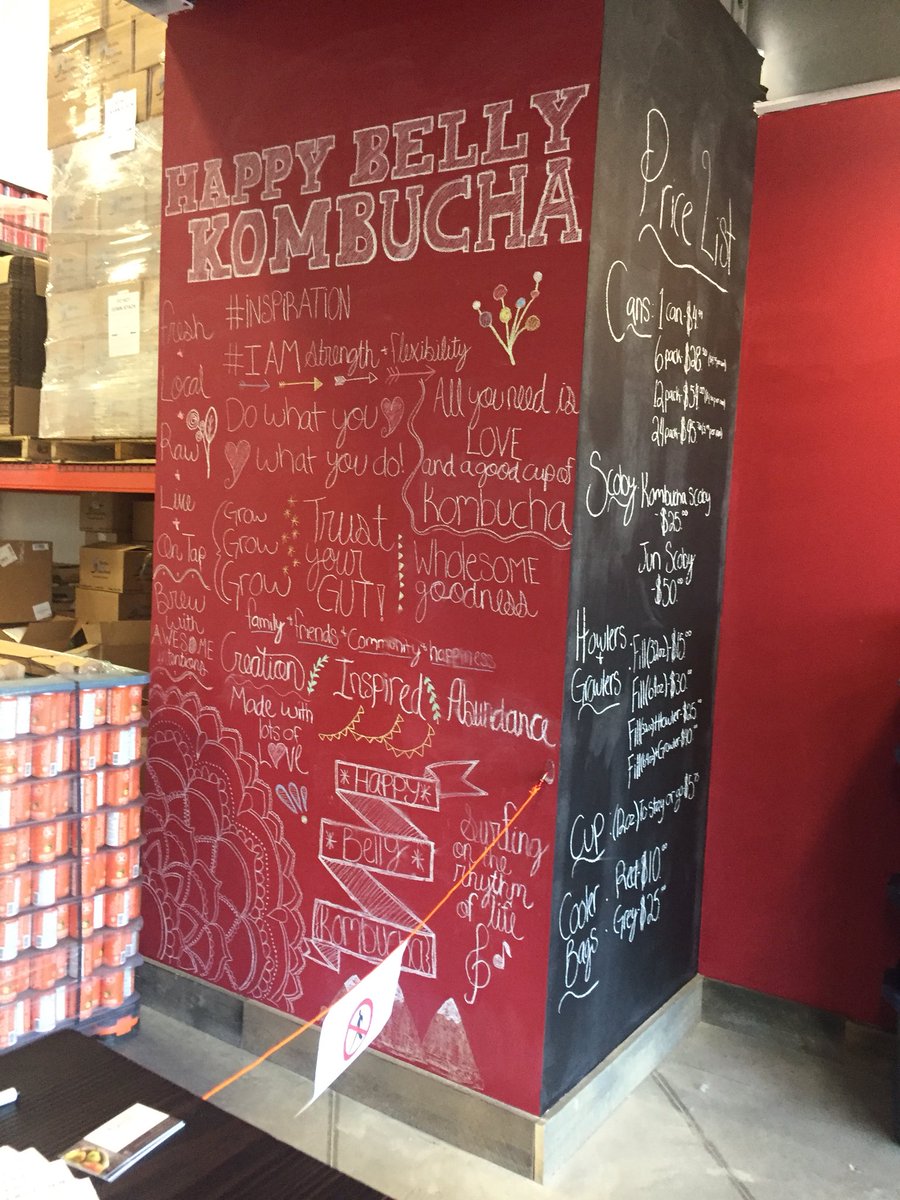 HAPPY BELLY
KOMBUCHA
Fresh
+
Local
+
Raw
+
Live
+
On Tap
Brew
with
AWESOME
intentions
#INSPIRATION
#I AM Strength + Flexibility
Do what you
what you do!
All you need is
LOVE
and a good cup of
Kombucha
Grow
Grow
Grow
Trust
your
GUT!
WHOLESOME
goodness
family + friends + Community + happiness
Creation
Inspired
Abundance
Made with
lots of
LOVE
*HAPPY*
*Belly*
Kombucha
Surfing
on the
rhythm
of life
Price List
Cans: 1 can-$4.00
6 pack-$28.50
12 pack-$54.00
24 pack-$95.00
Scoby Kombucha Scoby
-$25.00
Jun Scoby
-$50.00
Howlers
+
Growlers
Fill(32oz)-$15.00
Fill(64oz)-$30.00
Fill Howler-$25.00
Fill Growler-$40.00
Cup: (12oz) To stay or go-$5.50
Cooler
Bags
Red-$10.00
Grey-$25.00